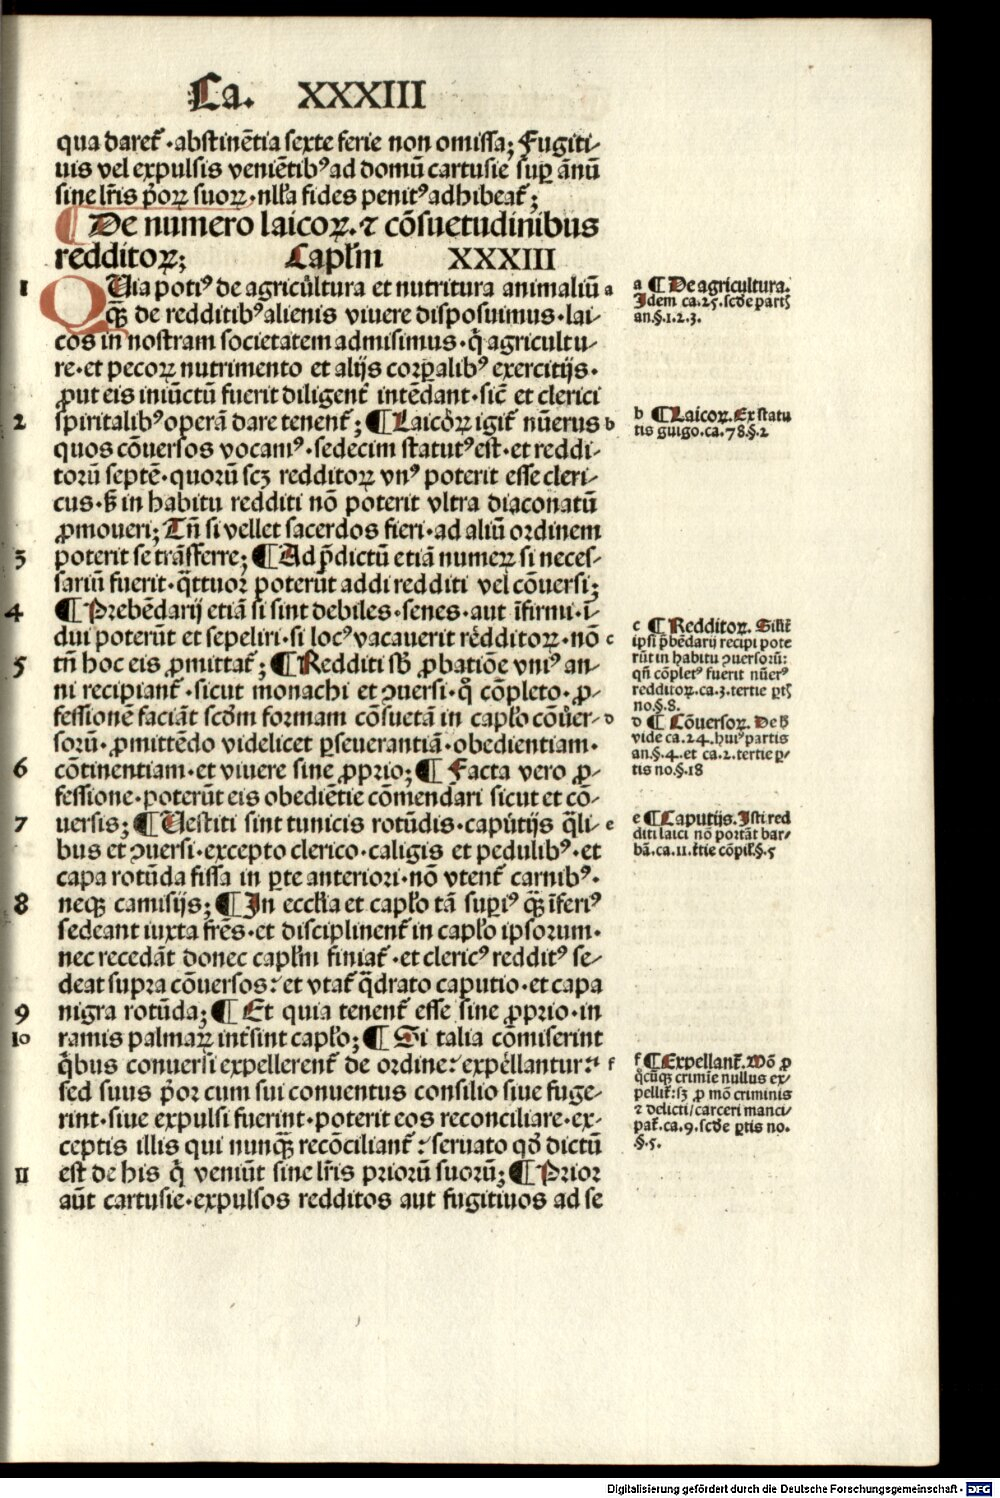 Ca. XXXIII
qua daret᷑ · abstinētia sexte ferie non omissa; Fugiti⸗
uis vel expulsis veniētibꝰ ad domū cartusie suꝑ ānū
sine lr̄is p̄oꝝ suoꝝ · nlla fides penitꝰ adhibeat᷑;
¶ De numero laicoꝝ. ⁊ cōsuetudinibus
redditoꝝ; Caplm̄ XXXIII
1 QUia potiꝰ de agricultura et nutritura animaliū a
qꝫ de redditibꝰ alienis viuere disposuimus · lai⸗
cos in nostram societatem admisimus · q̄ agricultu⸗
re · et pecoꝝ nutrimento et alijs corꝑalibꝰ exercitijs ·
ꝓut eis iniūctū fuerit diligent᷑ intēdant · sic̄ et clerici
2 spiritalibꝰ operā dare tenent᷑; ¶ Laicoꝝ igit᷑ nūerus b
quos cōuersos vocamꝰ · sedecim statutꝰ est · et reddi⸗
torū septē · quorū scꝫ redditoꝝ vnꝰ poterit esse cleri⸗
cus · ꝫ in habitu redditi nō poterit vltra diaconatū
ꝓmoueri; Tn̄ si vellet sacerdos fieri · ad aliū ordinem
3 poterit se trāsferre; ¶ Ad p̄dictū etiā numeꝝ si neces⸗
sariū fuerit · q̄ttuor poterūt addi redditi vel cōuersi;
4 ¶ Prebēdarij etiā si sint debiles · senes · aut īfirmi · ī⸗
dui poterūt et sepeliri · si locꝰ vacauerit redditoꝝ · nō c
5 tn̄ hoc eis ꝓmittat᷑; ¶ Redditi sb̄ ꝓbatiōe vniꝰ an⸗
ni recipiant᷑ · sicut monachi et ꝯuersi · qͦ cōpleto · ꝓ⸗
fessionē faciāt scd̄m formam cōsuetā in caplo cōuer⸗ d
sorū · ꝓmittēdo videlicet ꝑseuerantiā · obedientiam ·
6 cōtinentiam · et viuere sine ꝓprio; ¶ Facta vero ꝓ⸗
fessione · poterūt eis obediētie cōmendari sicut et cō⸗
7 uersis; ¶ Uestiti sint tunicis rotūdis · caputijs q̄li⸗ e
bus et ꝯuersi · excepto clerico · caligis et pedulibꝰ · et
capa rotūda fissa in ꝑte anteriori · nō vtent᷑ carnibꝰ ·
8 neqꝫ camisijs; ¶ In ecclīa et caplo tā suꝑiꝰ qꝫ īferiꝰ
sedeant iuxta fr̄es · et disciplinent᷑ in caplo ipsorum ·
nec recedāt donec caplm̄ finiat᷑ · et clericꝰ redditꝰ se⸗
deat supra cōuersos: et vtat᷑ q̄drato caputio · et capa
9 nigra rotūda; ¶ Et quia tenent᷑ esse sine ꝓprio · in
10 ramis palmaꝝ int̄sint caplo; ¶ Si talia cōmiserint
q̄bus conuersi expellerent᷑ de ordine: expellantur: f
sed suus p̄or cum sui conuentus consilio siue fuge⸗
rint · siue expulsi fuerint · poterit eos reconciliare · ex⸗
ceptis illis qui nunqꝫ recōciliant᷑: seruato qd̄ dictū
est de his q̄ veniūt sine lr̄is priorū suorū; ¶ Prior
11 aūt cartusie · expulsos redditos aut fugitiuos ad se
a ¶ De agricultura.
Idem ca. 25. scd̄e partꝭ
an. §. 1. 2. 3.
b ¶ Laicoꝝ. Ex statu
tis guigo. ca. 78. §. 2
c ¶ Redditoꝝ. Silit᷑
ipsi p̄bēdarij recipi pote
rūt in habitu ꝯuersorū:
qn̄ cōpletꝰ fuerit nūerꝰ
redditoꝝ. ca. 3. tertie ꝑtꝭ
no. §. 8.
d ¶ Cōuersoꝝ. De ꝫ
vide ca. 24. huiꝰ partis
an. §. 4. et ca. 2. tertie ꝑ⸗
tis no. §. 18
e ¶ Caputijs. Isti red
diti laici nō portāt bar⸗
bā. ca. 11. t̄tie cōpil. §. 5
f ¶ Expellant᷑. Nō ꝓ
q̊cūqꝫ crimīe nullus ex⸗
pellit᷑: sꝫ ꝓ mō criminis
⁊ delicti / carceri manci⸗
pat᷑. ca. 9. scd̄e ꝑtis no.
§. 5.
Digitalisierung gefördert durch die Deutsche Forschungsgemeinschaft - DFG